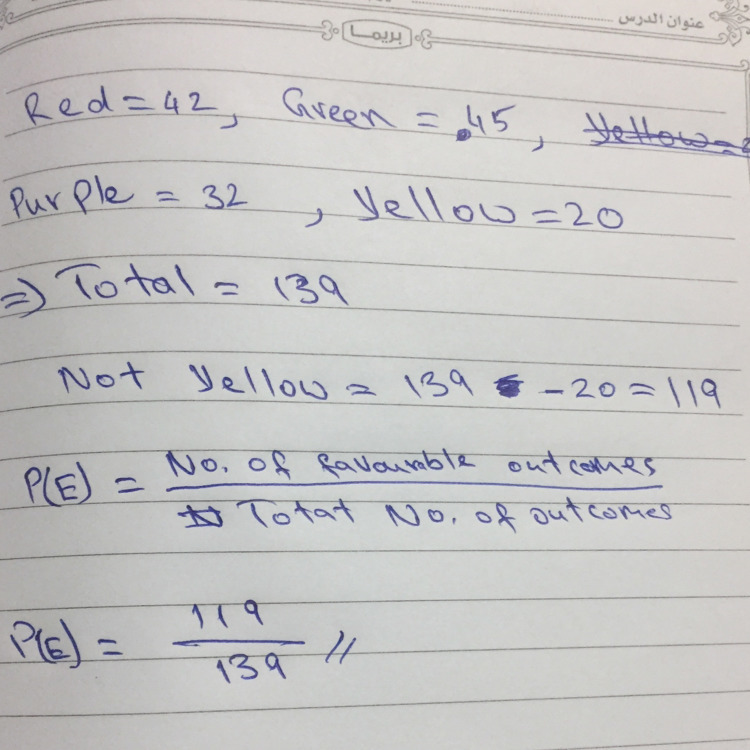 عنوان الدرس
بريما
Red = 42, Green = .45, Yellow =
Purple = 32 , Yellow = 20
=> Total = 139
Not Yellow = 139 - 20 = 119
P(E) = No. of favourable outcomes
Totat No. of outcomes
P(E) = 119
139 //